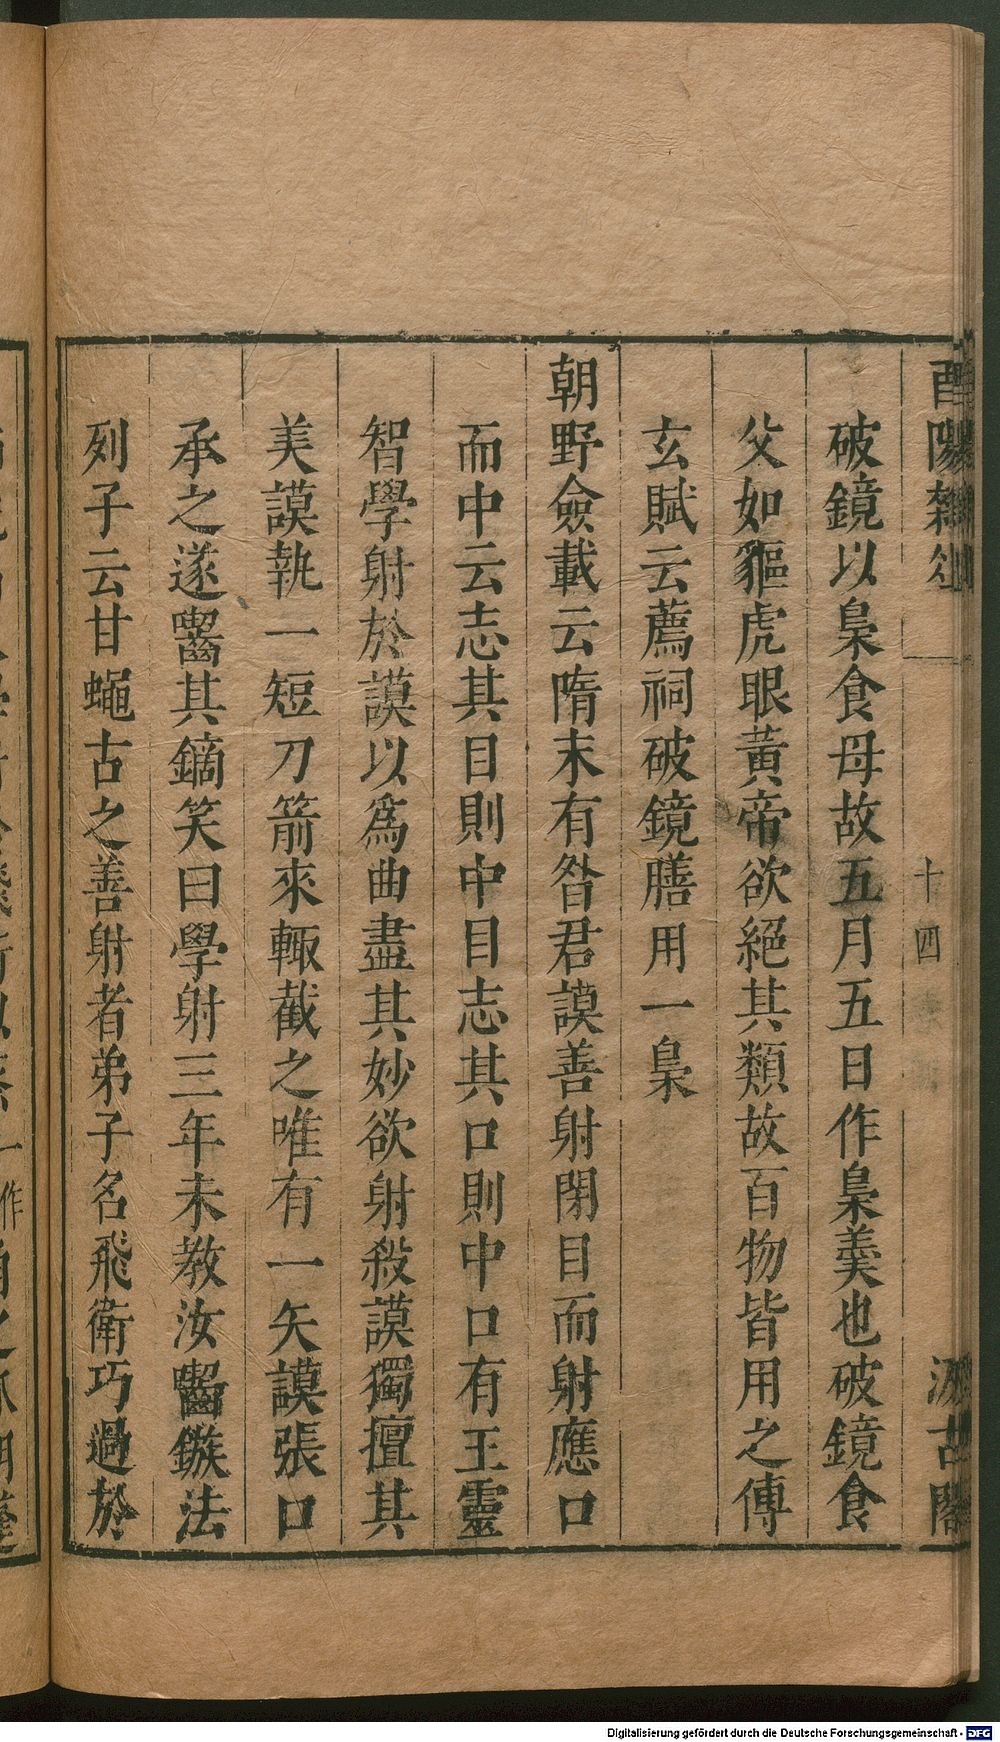 酉陽雜俎
十四
汲古閣
破鏡以梟食母故五月五日作梟羹也破鏡食
父如貙虎眼黃帝欲絕其類故百物皆用之傳
玄賦云薦祠破鏡膳用一梟
朝野僉載云隋末有昝君謨善射閉目而射應口
而中云志其目則中目志其口則中口有王靈
智學射於謨以爲曲盡其妙欲射殺謨獨擅其
美謨執一短刀箭來輙截之唯有一矢謨張口
承之遂齧其鏑笑曰學射三年未教汝齧鏃法
列子云甘蠅古之善射者弟子名飛衛巧過於
Digitalisierung gefördert durch die Deutsche Forschungsgemeinschaft - DFG